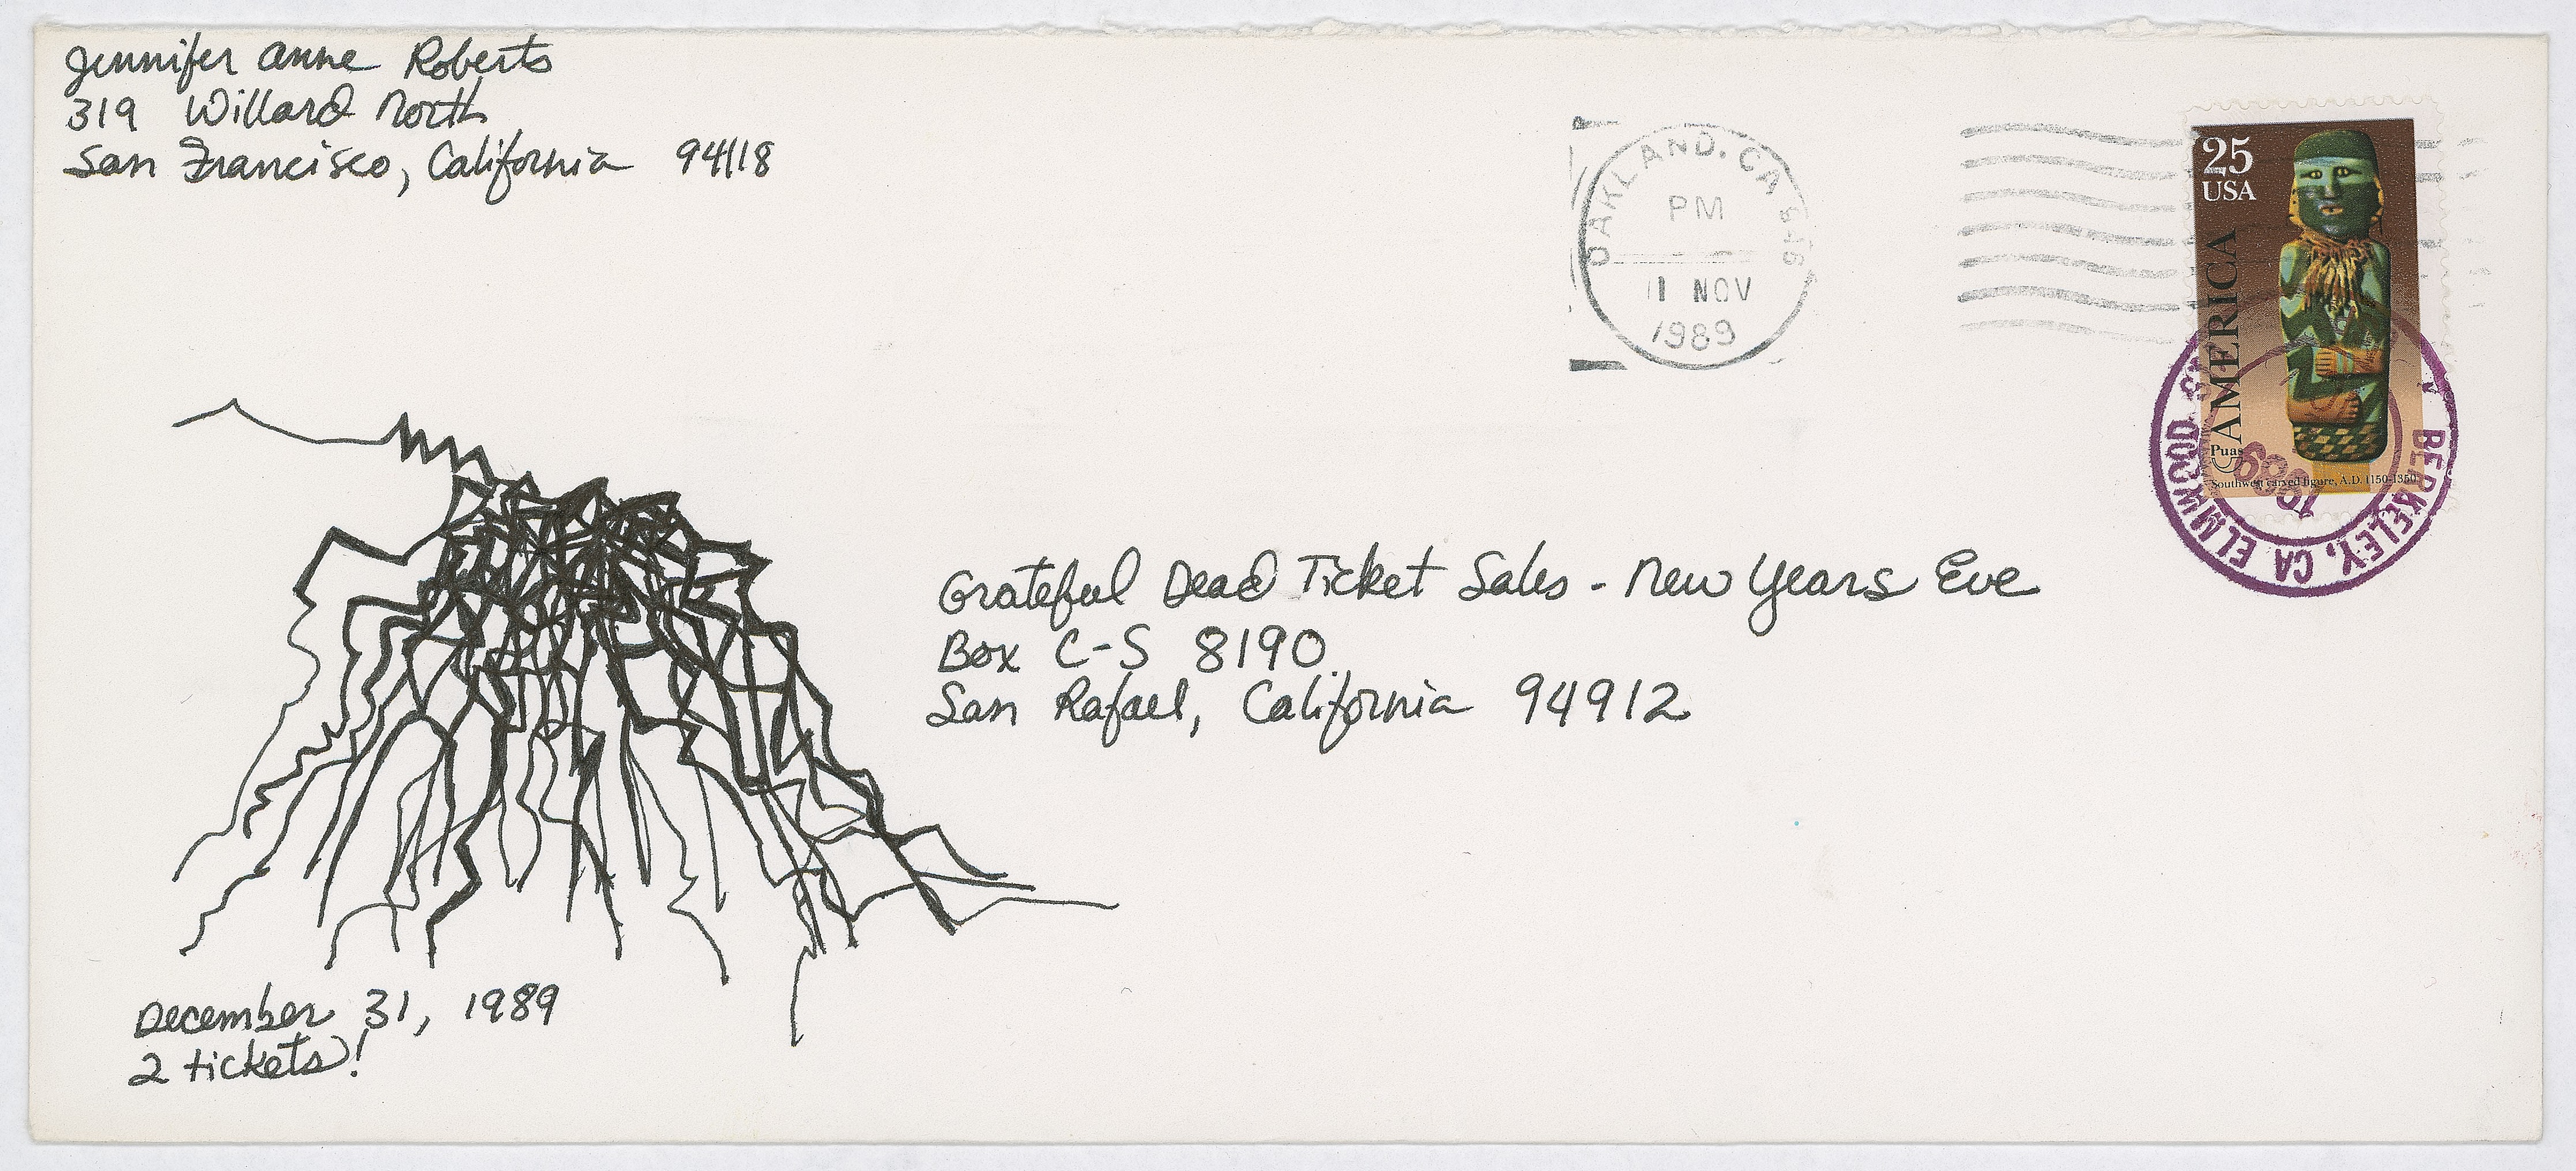 Jennifer Anne Roberts
319 Willard North
San Francisco, California 94118
OAKLAND, CA
PM
11 NOV
1989
25
USA
AMERICA
PUAS
Southwest carved figure, A.D. 1150-1350
BERKELEY, CA ELMWOOD
1989
Grateful Dead Ticket Sales - New Years Eve
Box C-S 8190
San Rafael, California 94912
December 31, 1989
2 tickets!